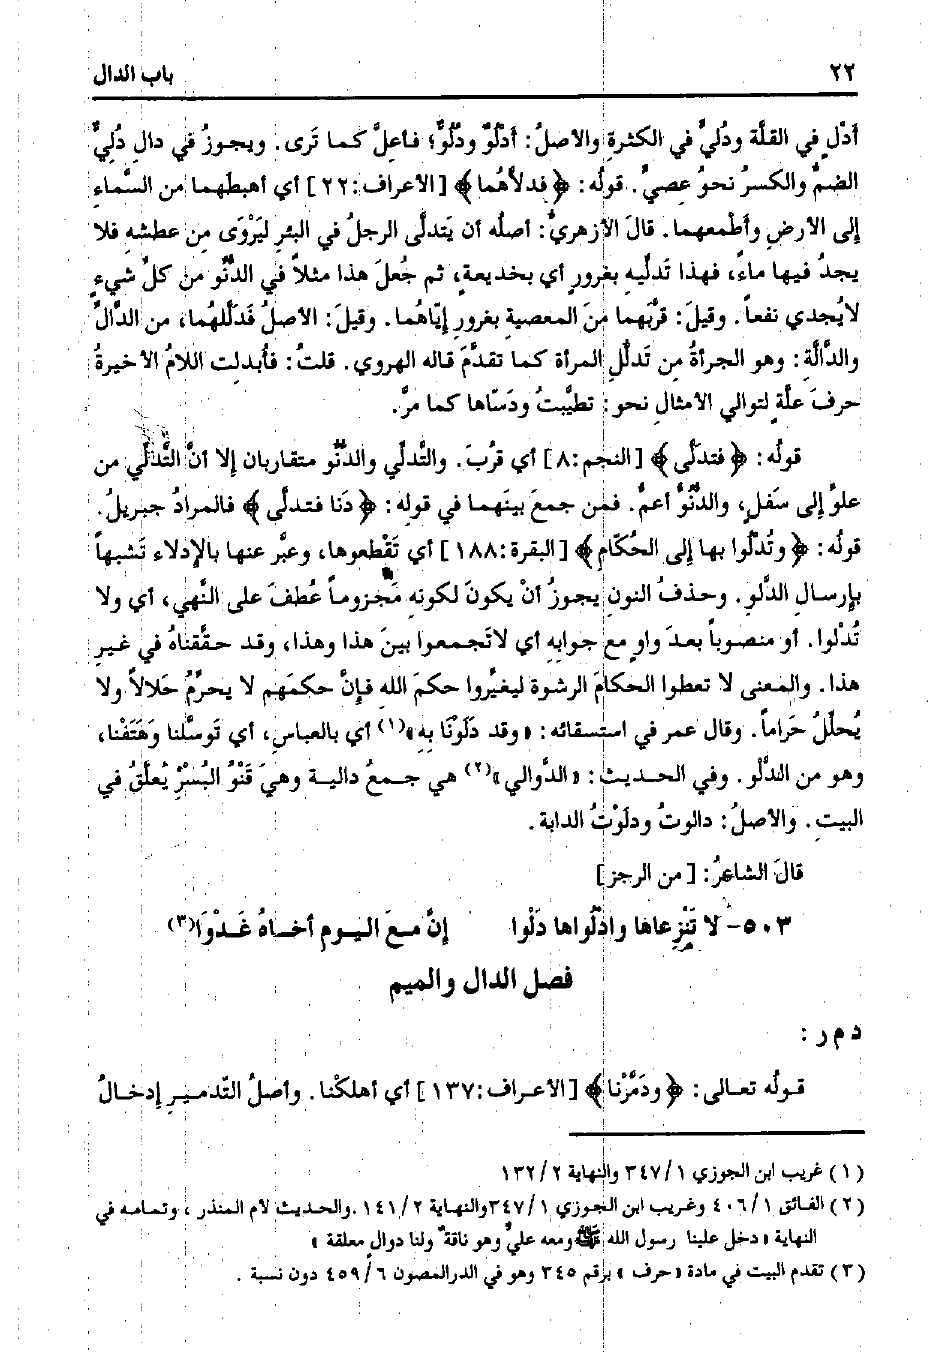 ٢٢ باب الدال
أدْلٍ في القلَّة ودُليٌّ في الكثرةِ والأصلُ: أدْلُوٌ ودُلُوٌّ؛ فأعِلَّ كما تَرى. ويجوزُ في دالِ دُلِيٍّ
الضمُّ والكسرُ نحوُ عصِيٍّ. قولُه: ﴿فدلاَّهُما﴾ [الأعراف:٢٢] أي أهبطَهما من السَّماءِ
إلى الأرضِ وأطْمعهما. قالَ الأزهريُّ: أصلُه أن يَتدلَّى الرجلُ في البئرِ ليَرْوَى مِن عطشِه فلا
يجدُ فيها ماءً، فهذا تَدلِّيهِ بغرورٍ أي بخديعةٍ، ثم جُعلَ هذا مثلاً في الدُّنُو من كلِّ شيءٍ
لا يُجدي نفعاً. وقيلَ: قرَّبَهما منَ المعصيةِ بغرورِ إيَّاهُما. وقيلَ: الأصلُ فَدَلَّلهُما، من الدَّالِّ
والدَّالَّةِ: وهو الجرأةُ مِن تَدلُّلِ المرأة كما تقدَّمَ قاله الهروي. قلتُ: فأبدلت اللامُ الأخيرةُ
حرفَ علَّةٍ لتوالي الأمثالِ نحو: تطيَّبتُ ودَسّاها كما مرَّ.
قولُه: ﴿فتدلَّى﴾ [النجم:٨] أي قرُبَ. والتَّدلِّي والدنُّو متقاربان إلا أنَّ التَّدلِّي من
علوٍّ إلى سَفلٍ، والدُّنُوُّ أعمُّ. فمن جمعَ بينَهما في قولِه: ﴿دَنا فتدلَّى﴾ فالمرادُ جبريلُ.
قولُه: ﴿وتُدْلُوا بها إلى الحُكّامِ﴾ [البقرة:١٨٨] أي تَقْطعوها، وعبَّر عنها بالإدلاء تَشبهاً
بإرسالِ الدَّلوِ. وحذفُ النونِ يجوزُ أنْ يكونَ لكونِه مَجزوماً عُطفَ على النَّهي، أي ولا
تُدْلوا. أو منصوباً بعدَ واوِ مع جوابِهِ أي لا تَجمعوا بينَ هذا وهذا، وقد حقَّقناهُ في غيرِ
هذا. والمعنى لا تعطوا الحكامَ الرشوة ليغيَّروا حكمَ الله فإنَّ حكمَهم لا يحرِّمُ حَلالاً ولا
يُحلِّلُ حَراماً. وقال عمر في استسقائه: «وقد دَلَوْنا بِهِ»(١) أي بالعباسِ، أي تَوسَّلنا وهَتَفْنا،
وهو من الدَّلْو. وفي الحديث: «الدَّوالي»(٢) هي جمعُ داليةٍ وهيَ قنْوُ البُسْرِ يُعلَّقُ في
البيتِ. والأصلُ: دالوتُ ودلَوْتُ الدابة.
قالَ الشاعرُ: [من الرجز]
٥٠٣- لا تَنْزِعاها وادْلُواها دَلْوا إنَّ مـعَ اليـومِ أخـاهُ غَـدْوَا(٣)
فصل الدال والميم
د م ر:
قولُه تعالى: ﴿ودَمَّرْنا﴾ [الأعراف:١٣٧] أي أهلكْنا. وأصلُ التّدميرِ إدخالُ
(١) غريب ابن الجوزي ٣٤٧/١ والنهاية ١٣٢/٢
(٢) الفائق ٤٠٦/١ وغريب ابن الجوزي ٣٤٧/١ والنهاية ١٤١/٢. والحديث لأم المنذر، وتمامه في
النهاية «دخل علينا رسول الله ﷺ ومعه عليٌّ وهو ناقهٌ ولنا دوالٍ معلقة»
(٣) تقدم البيت في مادة «حرف» برقم ٣٤٥ وهو في الدر المصون ٤٥٩/٦ دون نسبة.